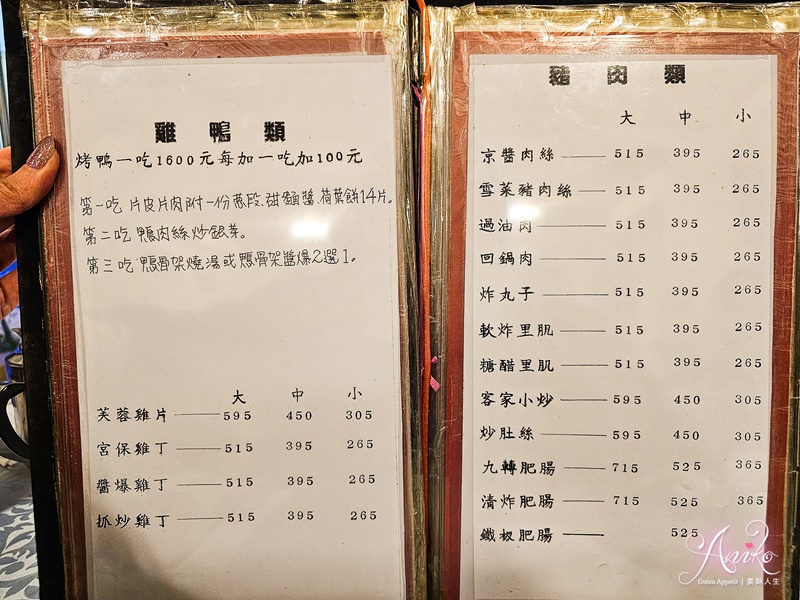 雞鴨類
烤鴨一吃1600元每加一吃加100元
第一吃 片皮片肉附一份蔥段、甜麵醬、荷葉餅14片。
第二吃 鴨肉絲炒銀芽。
第三吃 鴨骨架燒湯或鴨骨架醬爆2選1。
大 中 小
芙蓉雞片 595 450 305
宮保雞丁 515 395 265
醬爆雞丁 515 395 265
抓炒雞丁 515 395 265
豬肉類
大 中 小
京醬肉絲 515 395 265
雪菜豬肉絲 515 395 265
過油肉 515 395 265
回鍋肉 515 395 265
炸丸子 515 395 265
軟炸里肌 515 395 265
糖醋里肌 515 395 265
客家小炒 595 450 305
炒肚絲 595 450 305
九轉肥腸 715 525 365
清炸肥腸 715 525 365
鐵板肥腸 525
Aniko
Guten Appetit | 美味人生